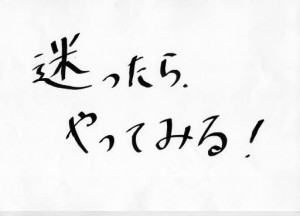 迷ったら、
やってみる!